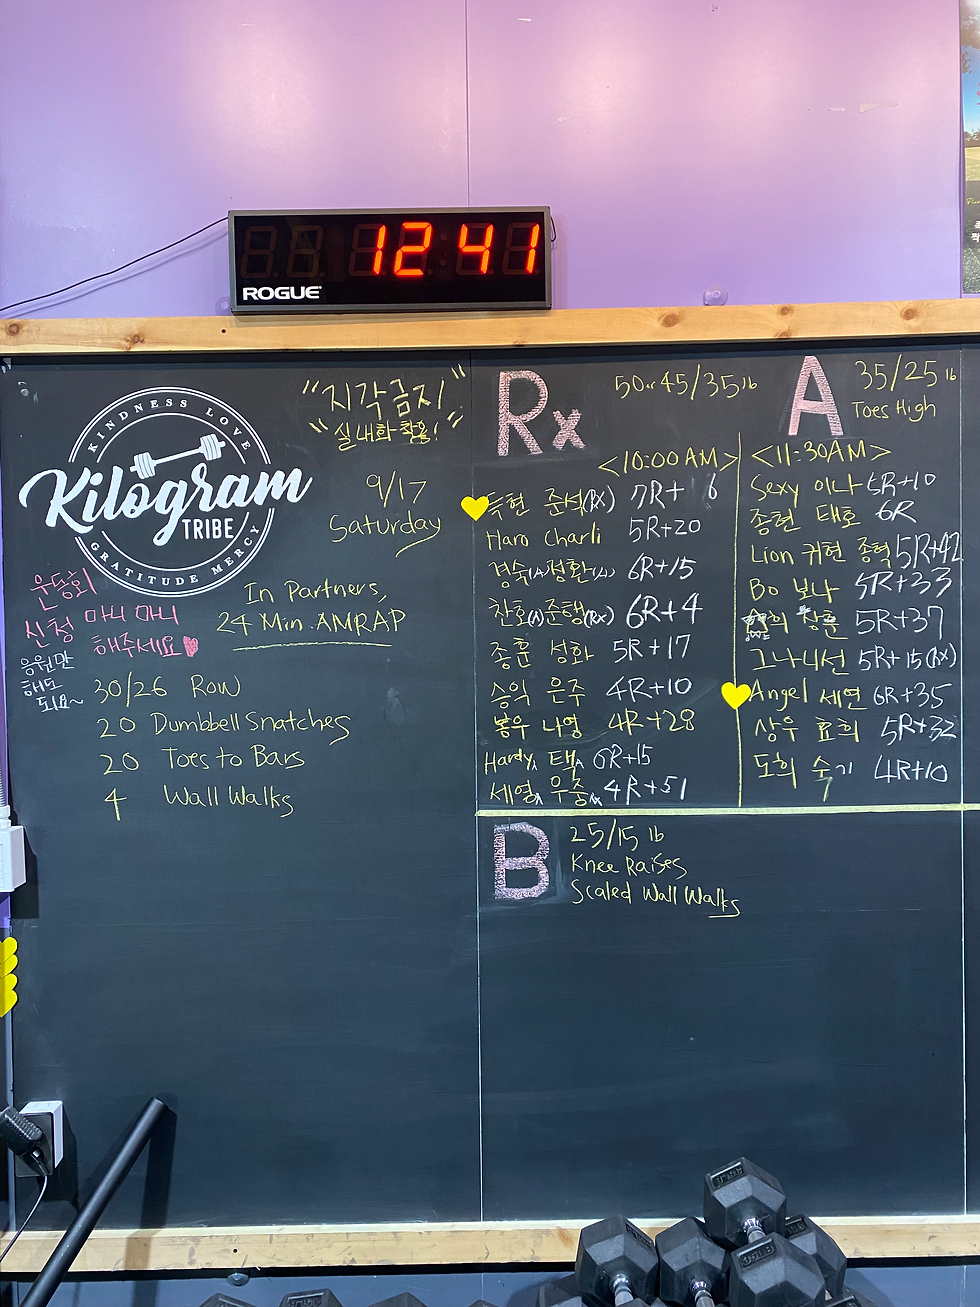 12 41
ROGUE
KINDNESS LOVE
Kilogram
TRIBE
GRATITUDE MERCY
"지각금지"
"실내화 착용!"
9/17
Saturday
운동회
신청 마니 마니
해주세요
응원만
해도
되요~
In Partners,
24 Min. AMRAP
30/26 Row
20 Dumbbell Snatches
20 Toes to Bars
4 Wall Walks
Rx 50 or 45/35 lb
<10:00 AM>
준석(Rx) 7R+ 6
Haro Charli 5R+20
경숙(A) 정환(A) 6R+15
찬호(A) 준행(Rx) 6R+4
종훈 성화 5R+17
승익 은주 4R+10
봉우 나영 4R+28
Hardy A 택 A 6R+15
세영 A 우중 Rx 4R+51
A 35/25 lb
Toes High
<11:30AM>
Sexy 이나 5R+10
종현 태호 6R
Lion 귀현 종혁 5R+42
Bo 보나 5R+33
창훈 5R+37
그나니선 5R+15(Rx)
Angel 세연 6R+35
상우 효희 5R+32
도희 수기 4R+10
B 25/15 lb
Knee Raises
Scaled Wall Walks